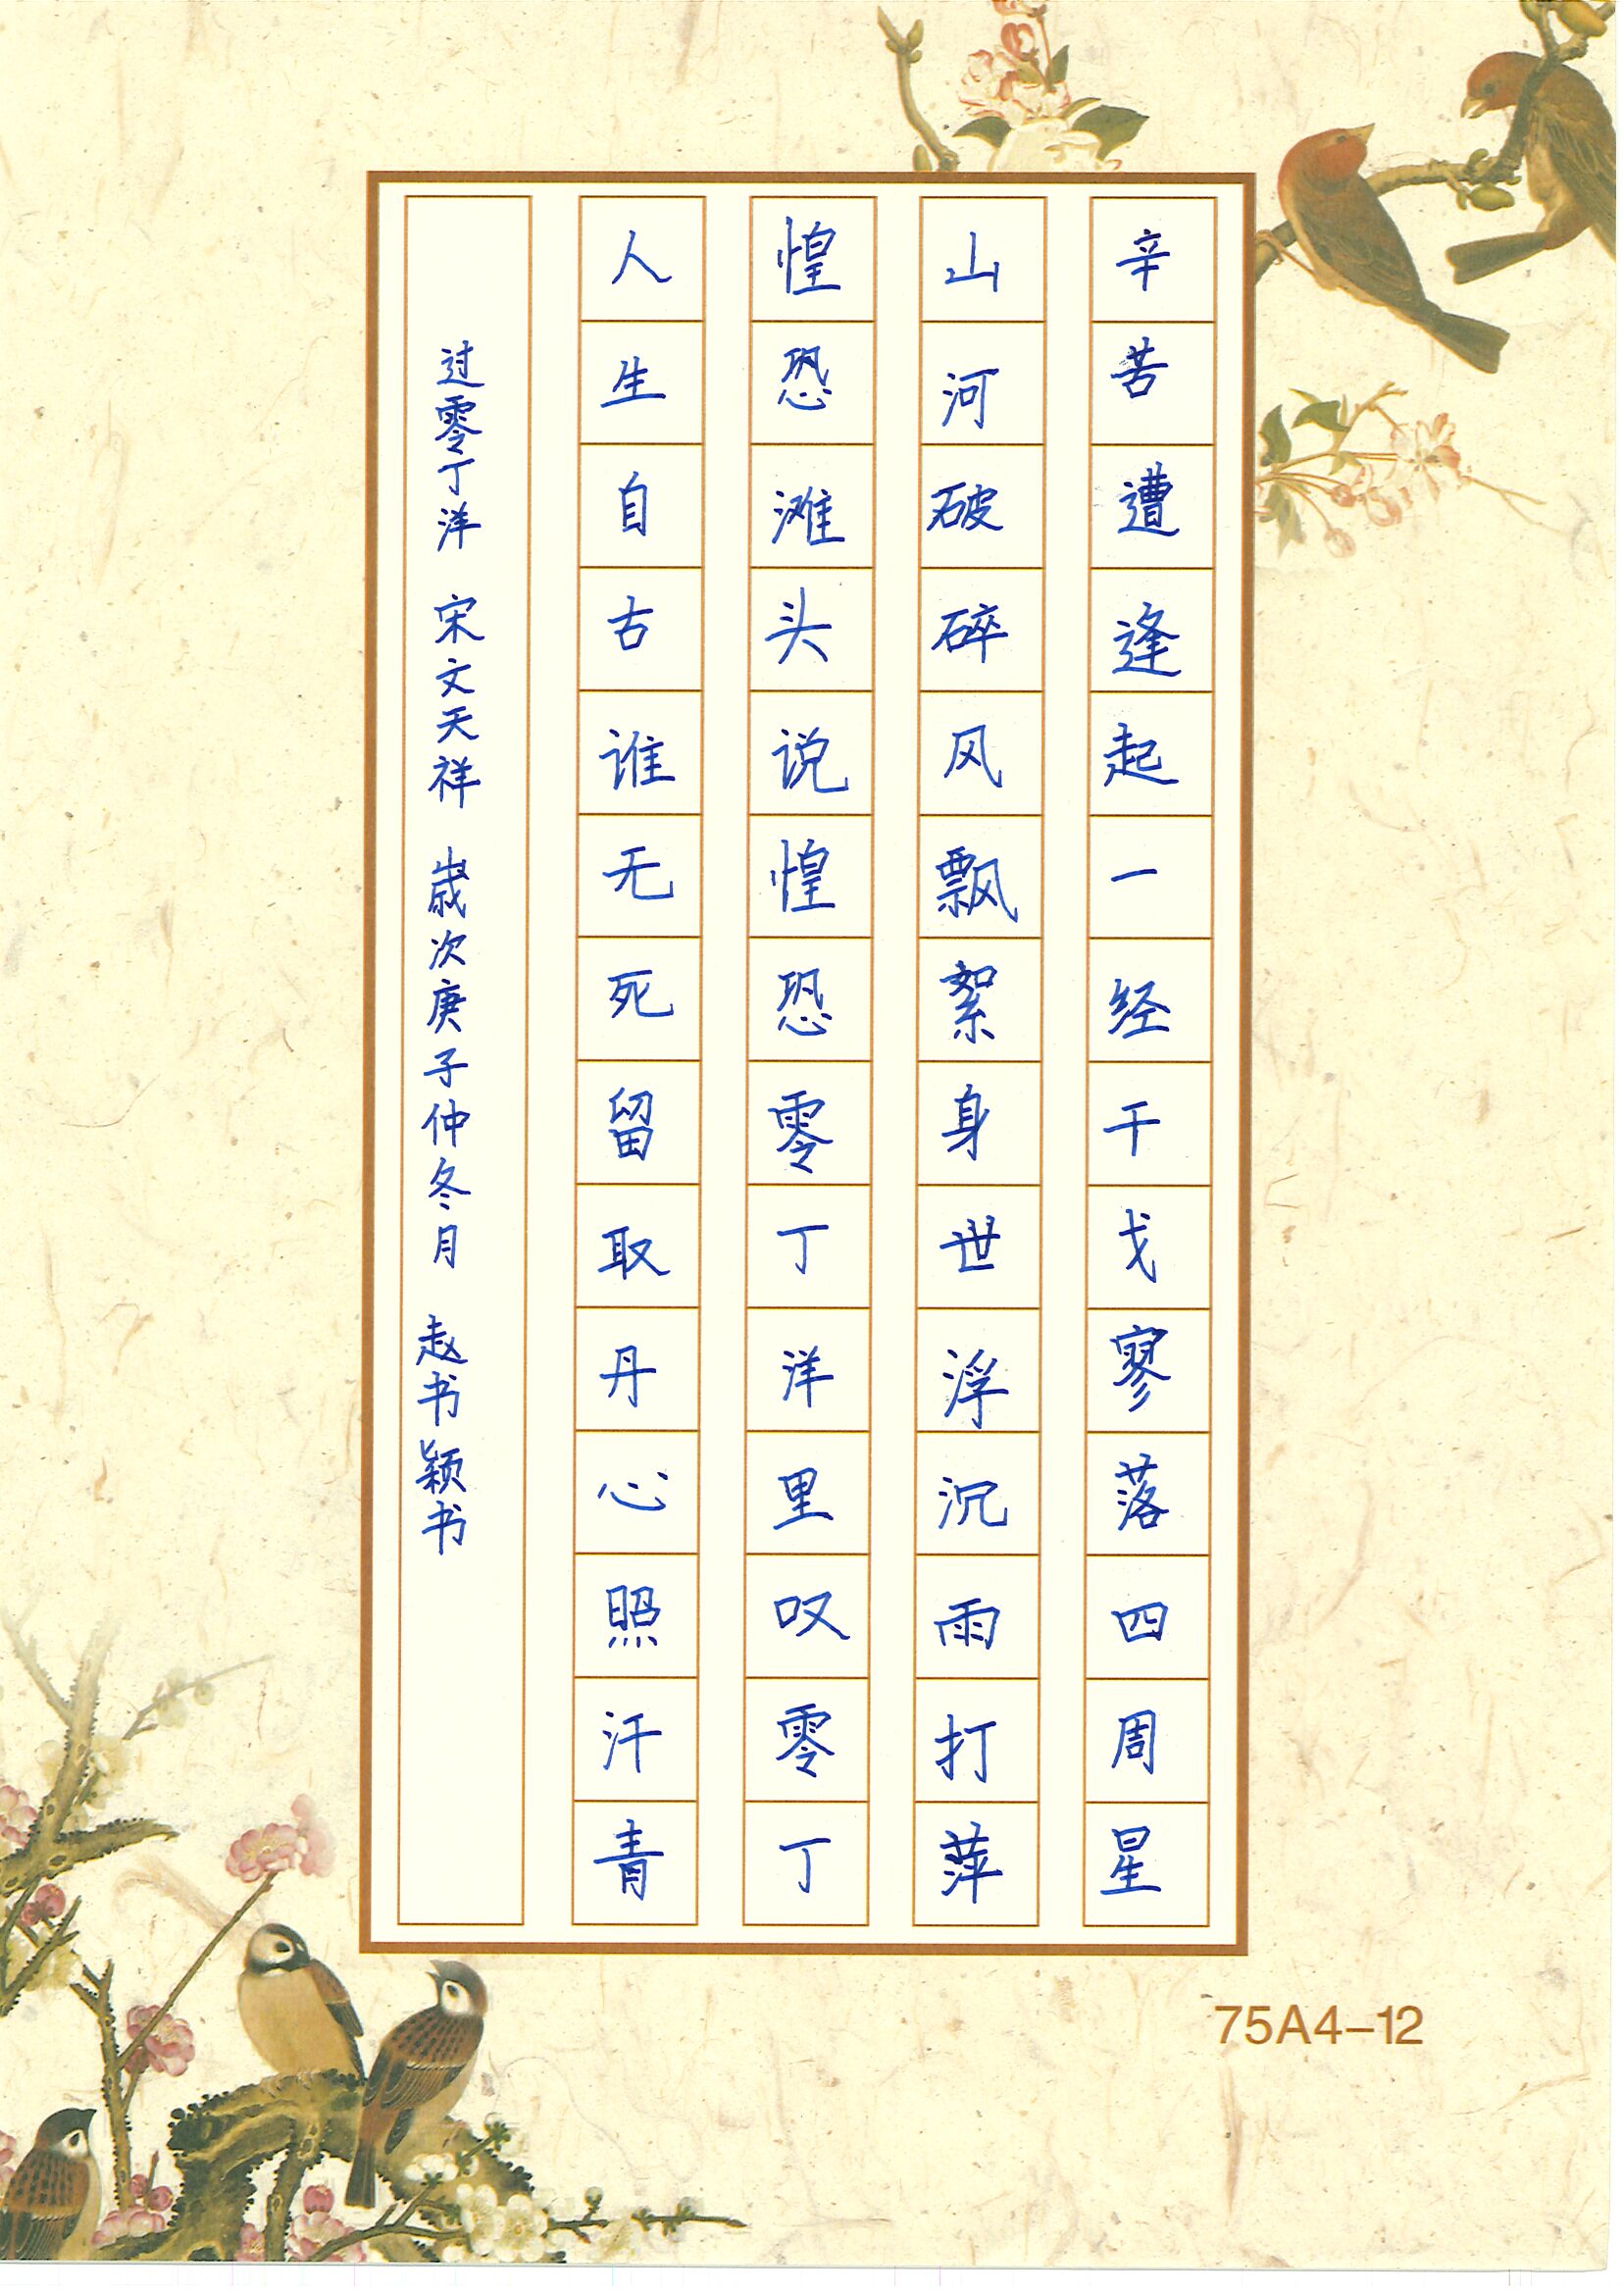 辛苦遭逢起一经干戈寥落四周星
山河破碎风飘絮身世浮沉雨打萍
惶恐滩头说惶恐零丁洋里叹零丁
人生自古谁无死留取丹心照汗青
过零丁洋 宋文天祥 岁次庚子仲冬月 赵书颖书
75A4-12